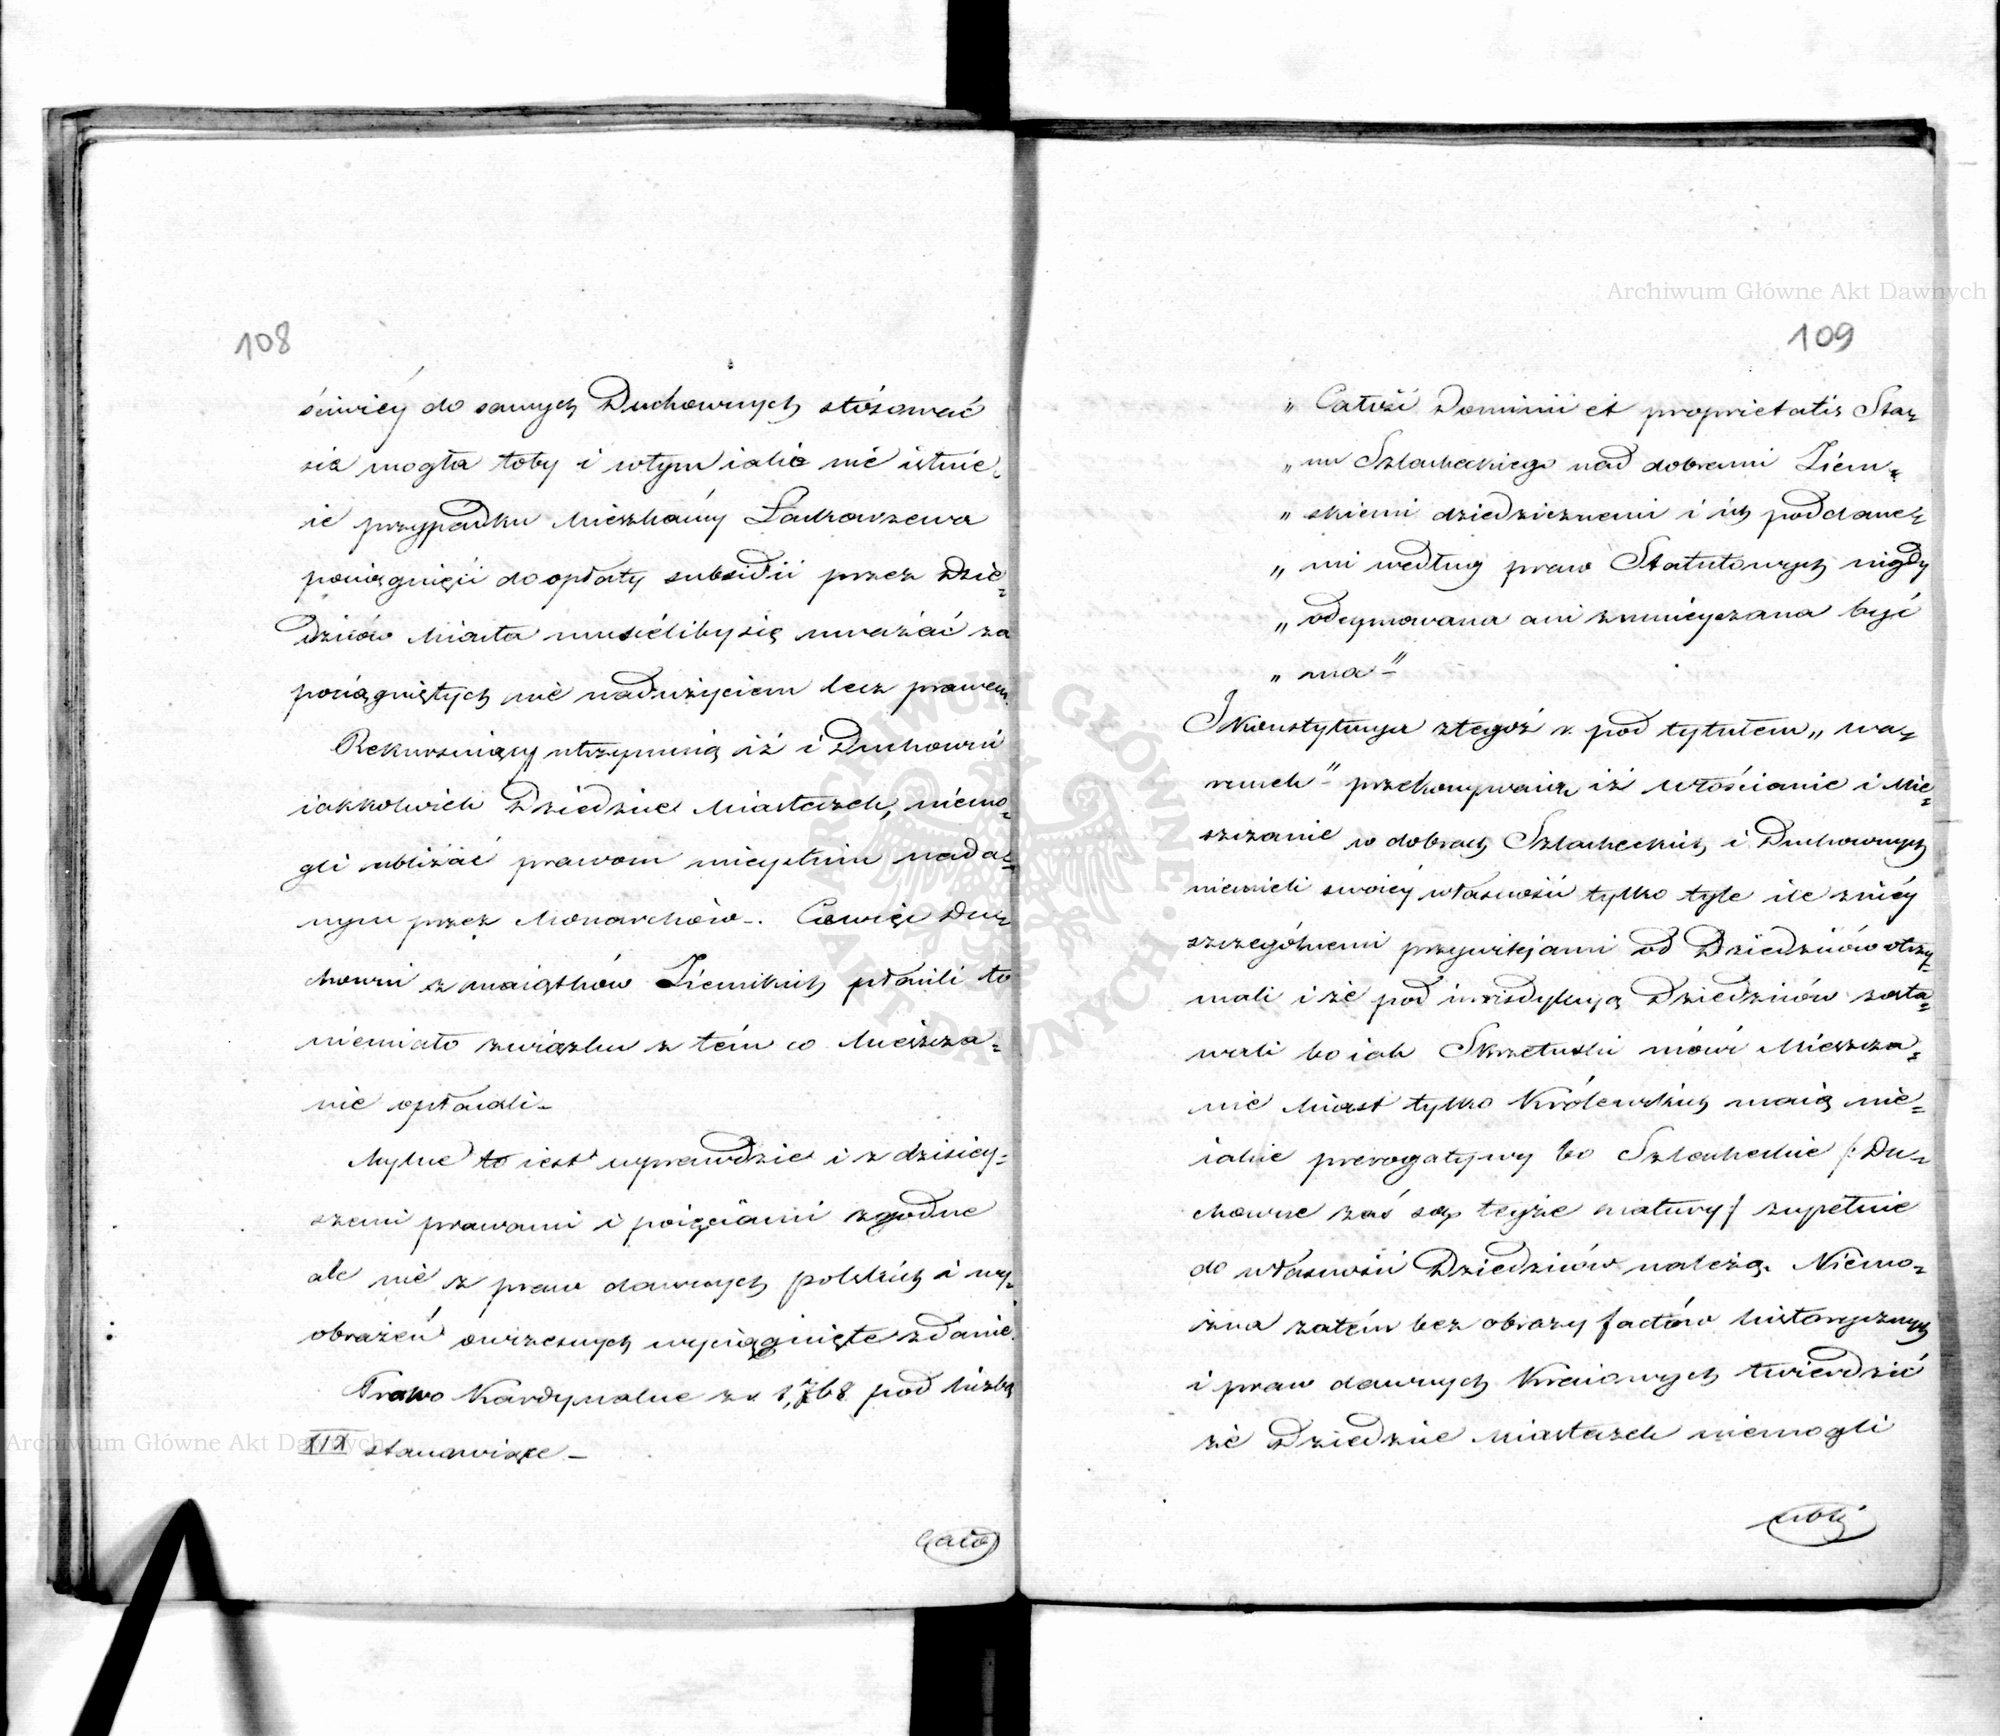 108
ściwiéy do samych Duchownych stósować
się mogła toby i wtym iakie nie istnie„
ie przypadku Mieszkańcy
pociągnięci do opłaty subsidii przez Dzie„
dziców Miasta musieliby się uważać za
pociągniętych nie nadużyciem lecz prawem
Rekursuiący utrzymuią iż i Duchowni
iakkolwiek Dziedzice Miasteczek, niemo„
gli ubliżać prawom mieyskim nada„
nym przez Monarchów. Co więc Du„
chowni z maiątków Ziemskich płacili to
niemiało związku z tém co Mieszcza„
nie opłacali
Mylne to iest wprawdzie i z dzisiey„
szemi prawami i poięciami zgodne
ale nie z praw dawnych polskich i wy„
obrażeń ówczesnych wyciągnięte zdanie.
Prawo Kardynalne z r. 1768 pod liczbą
XIX stanowiące
Całość
109
„ Całość Dominii et proprietatis Sta„
„ nu Szlacheckiego nad dobrami Ziem„
„ skiemi dziedzicznemi i ich poddane„
„ mi według praw Statutowych nigdy
„ odeymowana ani zmnieyszana być
„ ma"
I Konstytucya z tegoż r. pod tytułem „ wa„
runek" przekonywaią iż włościanie i Mie„
szczanie w dobrach Szlacheckich i Duchownych
niemieli swoiéy własności tylko tyle ile z niéy
szczególnemi przywilejami od Dziedziców otrzy„
mali i że pod iurisdykcyą Dziedziców zosta„
wali bo iak Skrzetuski mówi Mieszcza„
nie Miast tylko Królewskich maią nie„
iakie prerogatywy bo Szlacheckie /: Du„
chowne zaś są teyże natury :/ zupełnie
do własności Dziedziców należą. Niemo„
żna zatém bez obrazy factów historycznych
i praw dawnych Kraiowych twierdzić
że Dziedzice Miasteczek niemogli
ubli
Archiwum Główne Akt Dawnych
Archiwum Główne Akt Dawnych
ARCHIWUM GŁÓWNE AKT DAWNYCH